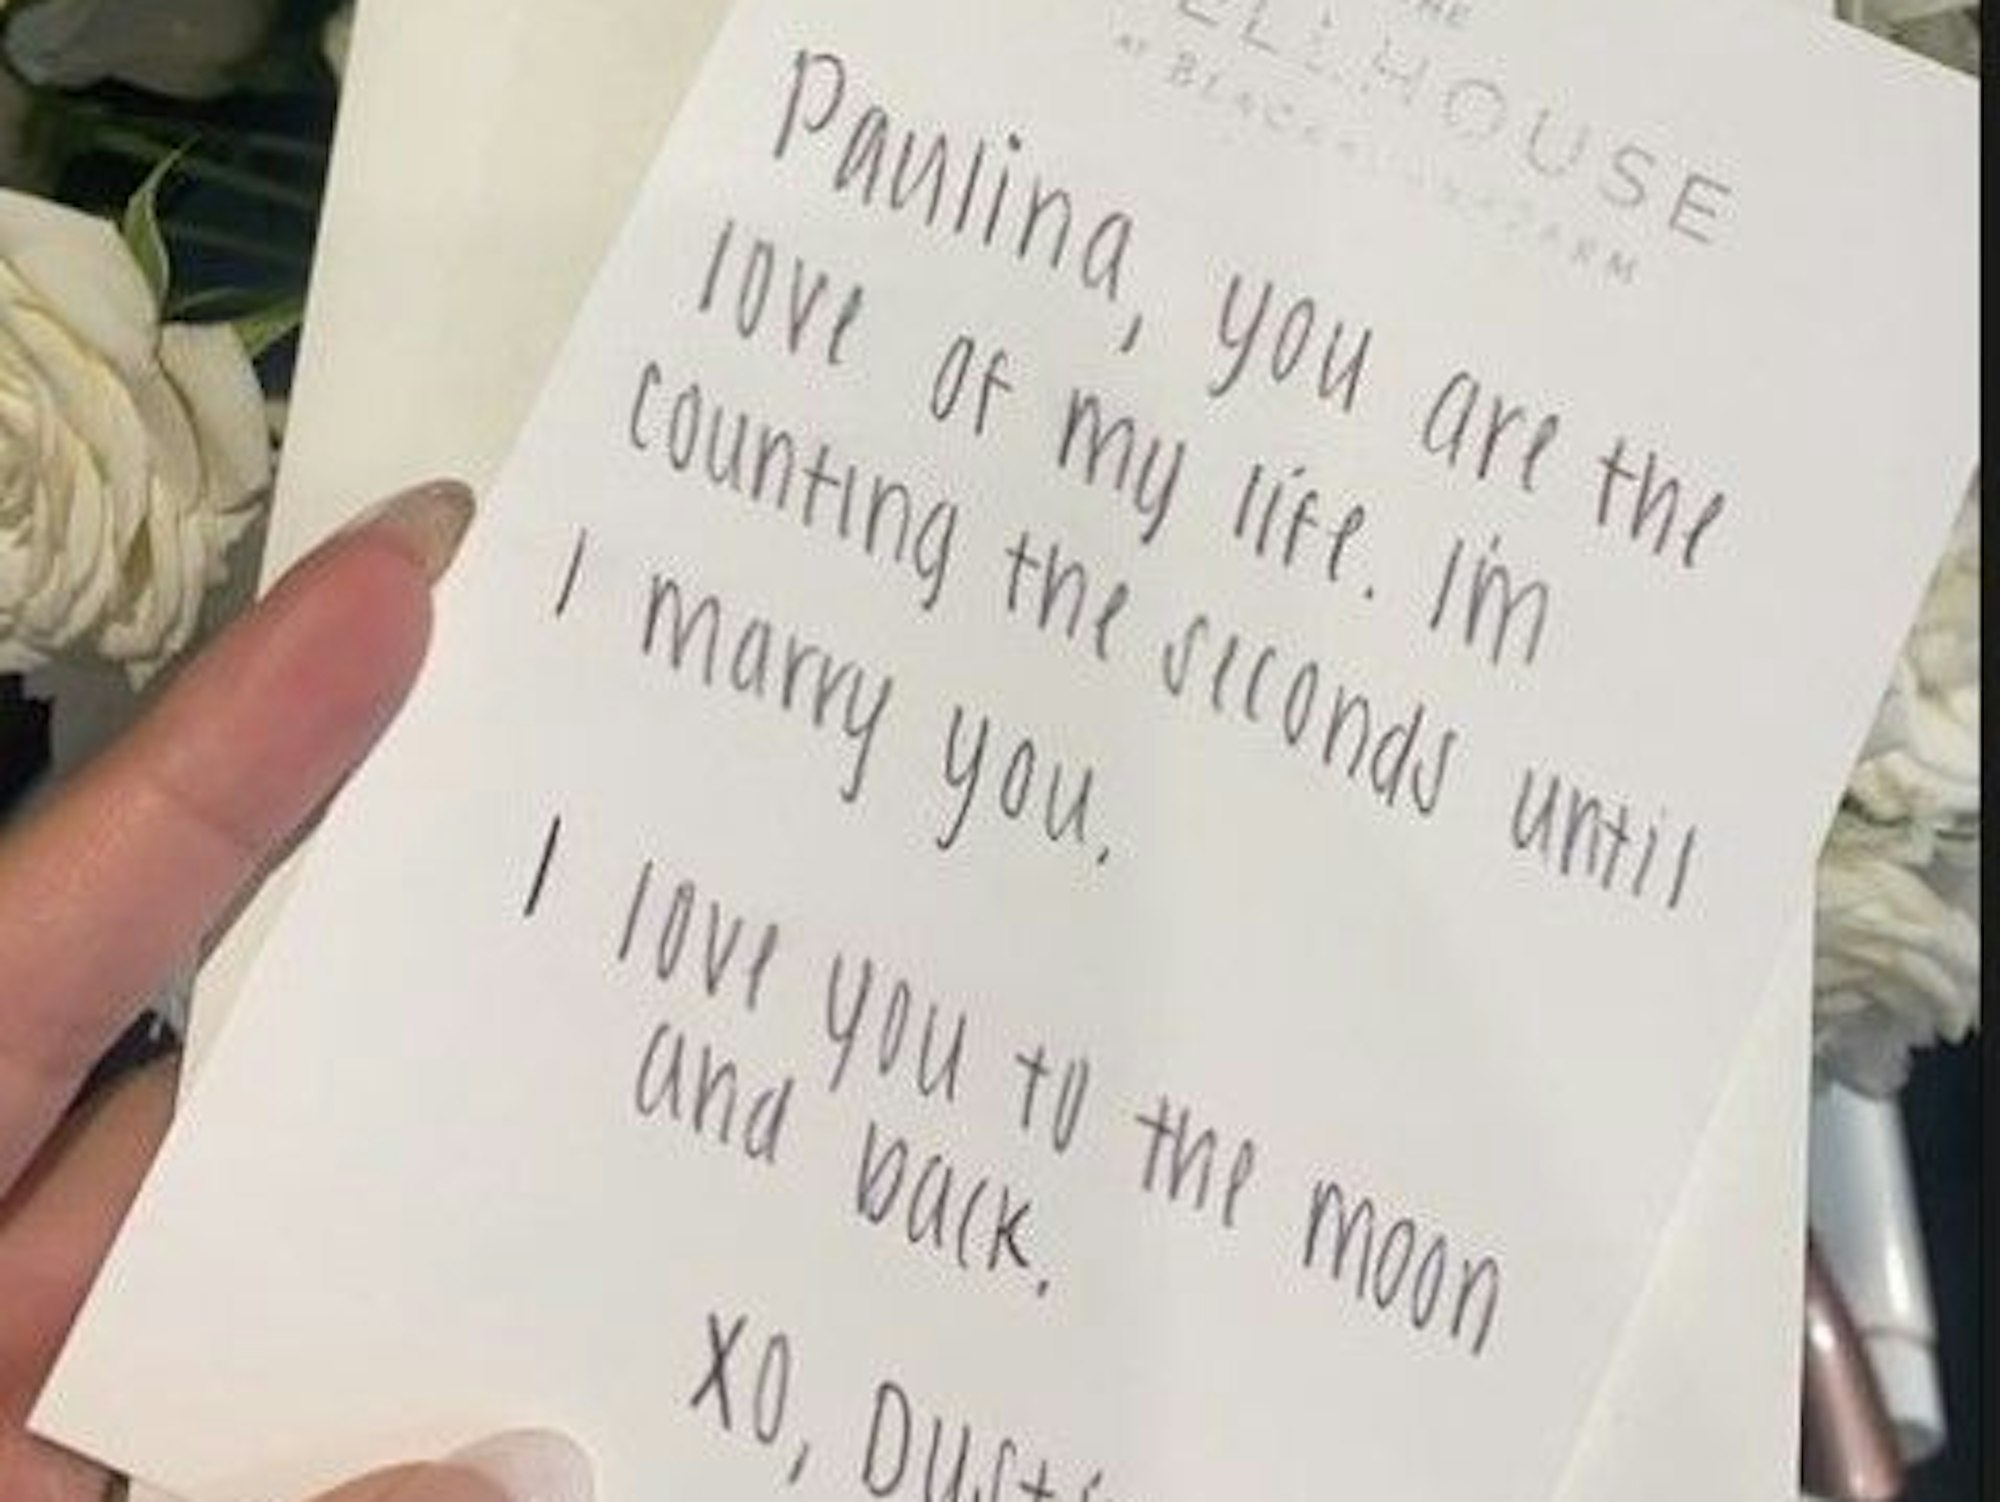 HOUSE
Paulina, you are the
love of my life. I'm
counting the seconds until
I marry you.
I love you to the moon
and back.
XO, Dusti